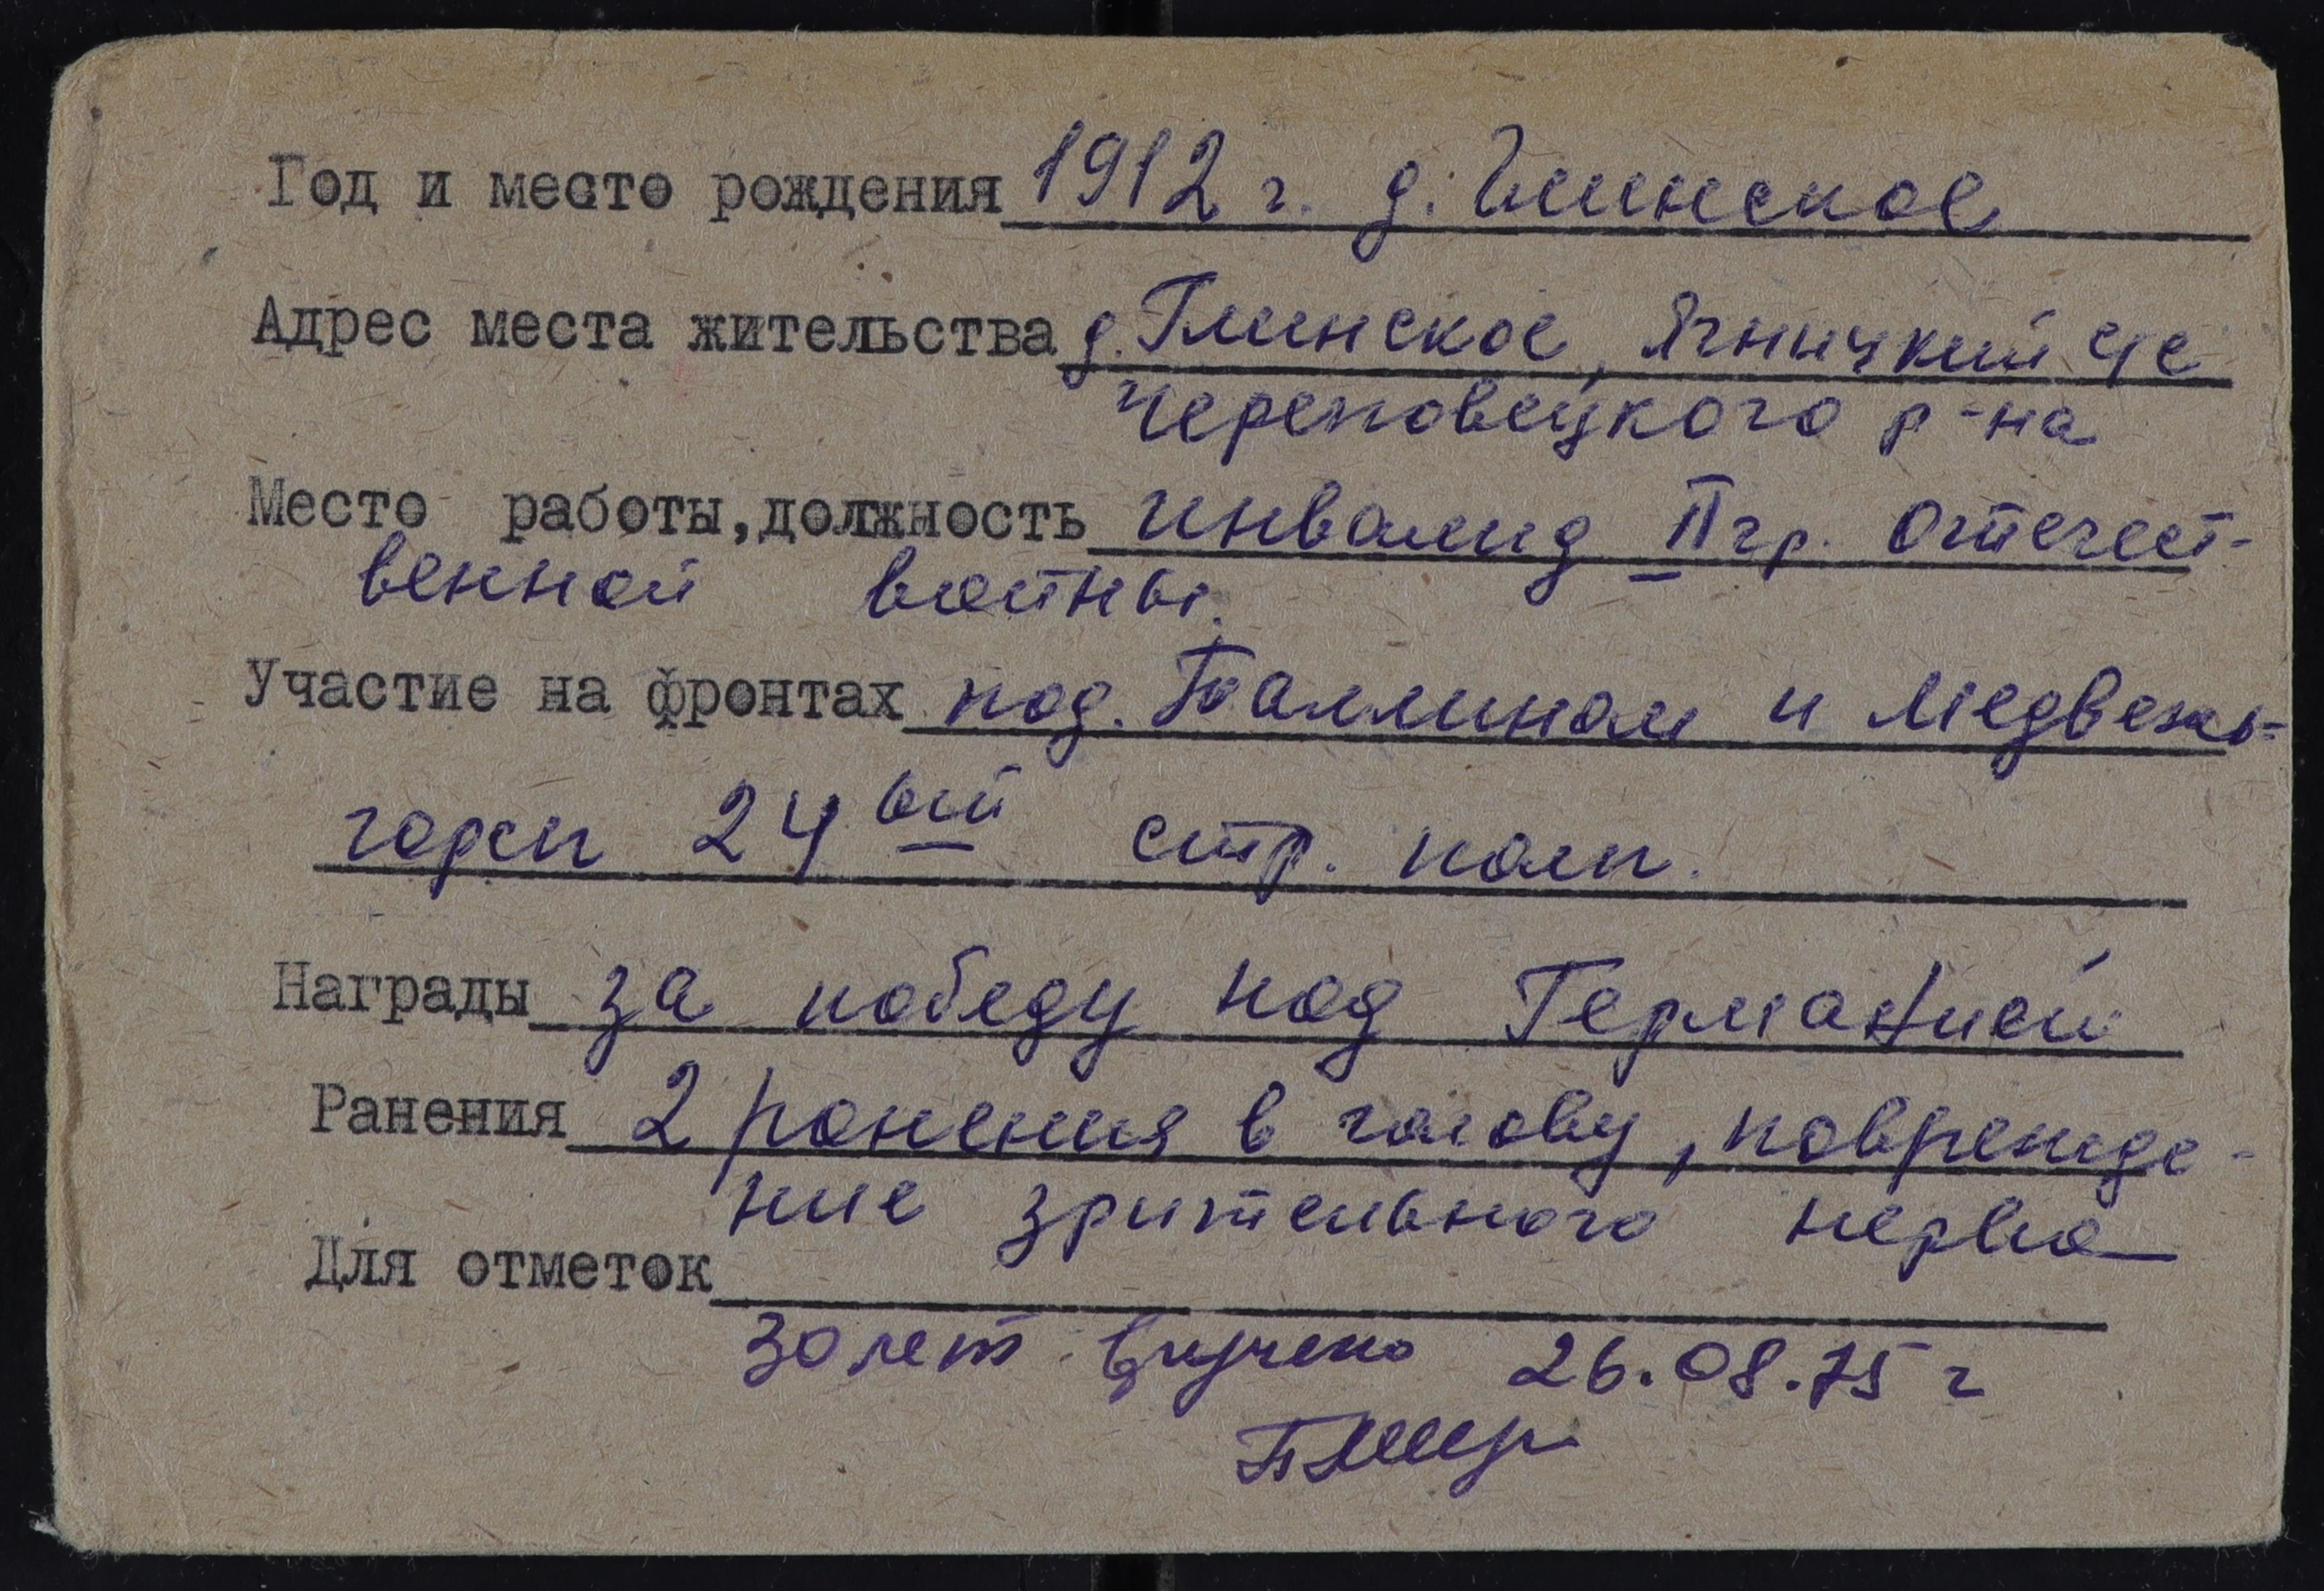 Год и место рождения 1912 г. д. Глинское
Адрес места жительства д. Глинское, Ягничкий с/с
Череповецкого р-на
Место работы, должность инвалид II гр. отечест-
венной войны.
Участие на фронтах под. Таллином и Медвежь-
горск 24ый стр. полк.
Награды За победу над Германией
Ранения 2 ранения в голову, поврежде-
ние зрительного нерва
Для отметок
30 лет вручено 26.08.75 г